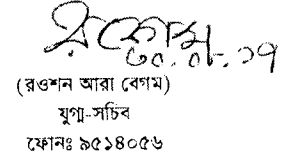 (রওশন আরা বেগম)
যুগ্ম-সচিব
ফোনঃ ৯৫১৪০৫৬